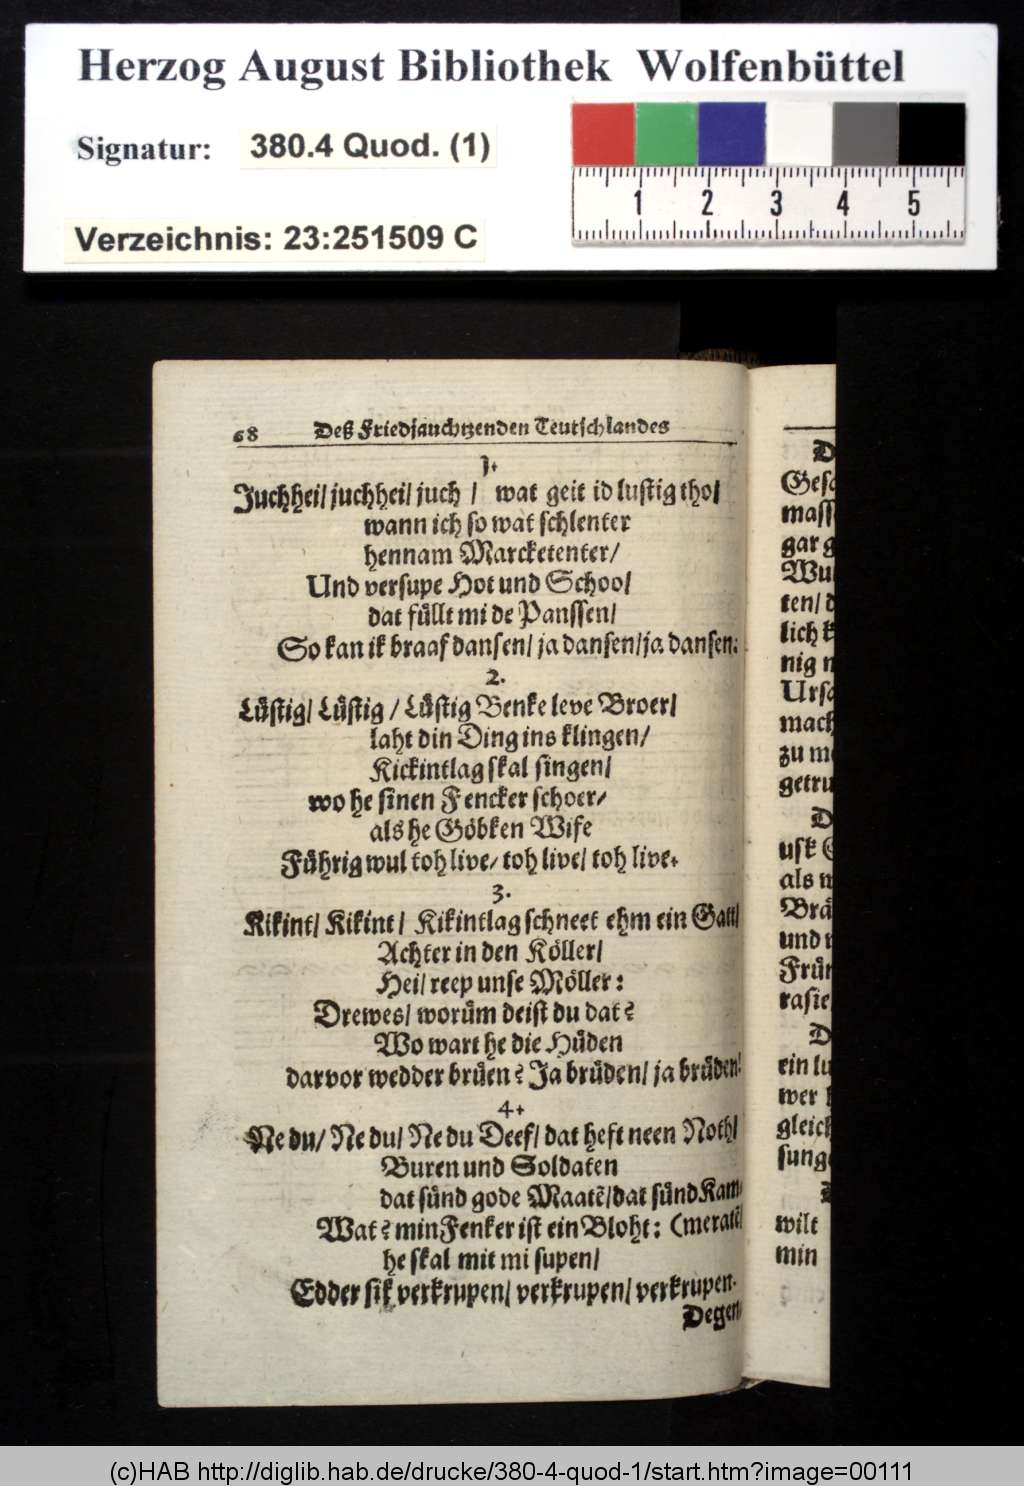 Herzog August Bibliothek Wolfenbüttel
Signatur: 380.4 Quod. (1)
1 2 3 4 5
Verzeichnis: 23:251509 C
68 Deß Friedjauchtzenden Teutschlandes
1.
Juchhei/ juchhei/ juch / wat geit id lustig tho/
wann ich so wat schlenter
hennam Marcketenter/
Und versupe Hot und Schoo/
dat füllt mi de Panssen/
So kan ik braaf dansen/ ja dansen/ ja dansen:
2.
Lüstig/ Lüstig / Lüstig Benke leve Broer/
laht din Ding ins klingen/
Kickintlag skal singen/
wo he sinen Fencker schoer/
als he Göbken Wife
Führig wul toh live/ toh live/ toh live.
3.
Kikint/ Kikint/ Kikintlag schneet ehm ein Gatt/
Achter in den Köller/
Hei/ reep unse Möller:
Drewes/ worüm deist du dat?
Wo wart he die Hüden
darvor wedder brüen? Ja brüden/ ja brüden!
4.
Ne du/ Ne du/ Ne du Deef/ dat heft neen Noth/
Buren und Soldaten
dat sünd gode Maatẽ/dat sünd Kam-
Wat? min Fenker ist ein Bloht: (meratẽ/
he skal mit mi supen/
Edder sik verkrupen/ verkrupen/ verkrupen.
Degen
Gesc
mass
gar g
Wu
ten/ d
lich k
nig n
Ursa
mach
zu m
getru
usk G
als w
Brä
und
Frün
rasie
ein lu
wer
gleich
sung
wilt
min
(c)HAB http://diglib.hab.de/drucke/380-4-quod-1/start.htm?image=00111